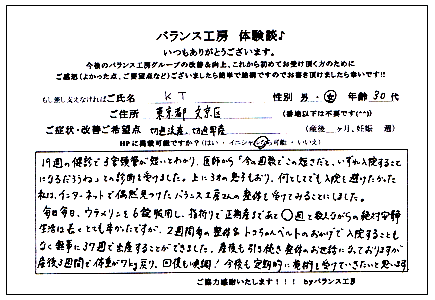 バランス工房 体験談♪
いつもありがとうございます。
今後のバランス工房グループの改善&向上、これから初めてお受け頂く方のために
ご感想(よかった点、ご要望点など)ございましたら簡単で結構ですのでお書き頂けましたら幸いです!!
もし差し支えなければご氏名 KT 性別 男・女 年齢 30代
ご住所 東京都 文京区 (番地以下は不要です^^)
ご症状・改善ご希望点 切迫流産、切迫早産 (産後 ヶ月、妊娠 週)
HPに掲載可能ですか?(はい・イニシャルなら可能・いいえ)
19週の健診で子宮頸管が短いとわかり、医師から「今の週数でこの短さだと、いずれ入院すること
になるだろうね」との診断を受けました。上に3才の息子もおり、何としてでも入院を避けたかった
私は、インターネットで偶然見つけたバランス工房さんの整体を受けてみることにしました。
毎日毎日、ウテメリンを6錠服用し、指折りで正期産まであと○週と数えながらの絶対安静
生活は長くとても辛かったですが、2週間毎の整体&トコちゃんベルトのおかげで入院することも
なく無事に37週で出産することができました。産後も引き続き整体のお世話になっておりますが
産後3週間で体重が7kg戻り、回復も順調!今後も定期的に施術を受けていきたいと思います
ご協力感謝いたします!!! byバランス工房